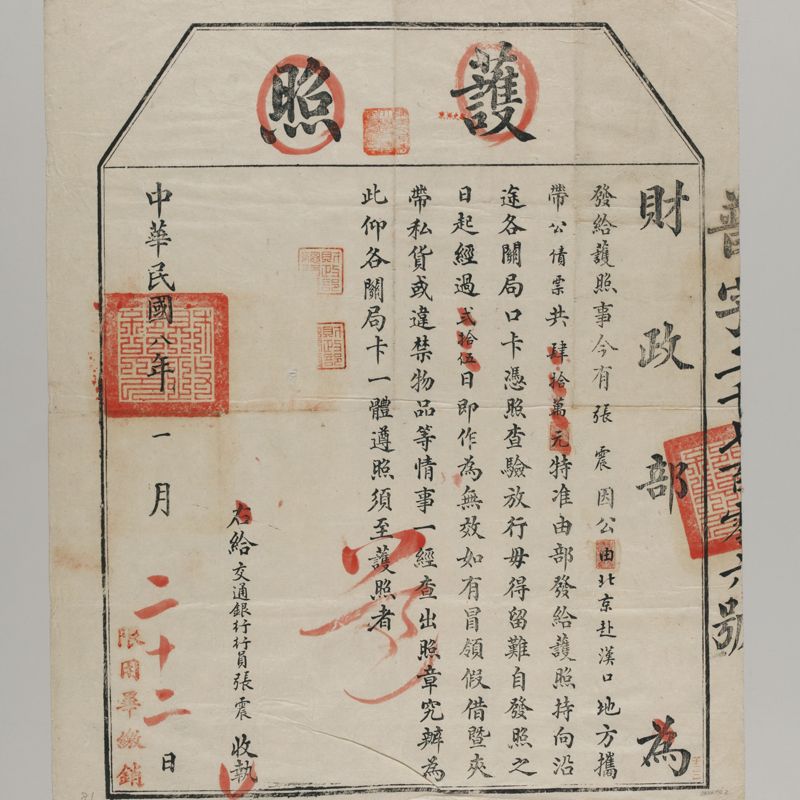 護照
財政部為
發給護照事今有張震因公由北京赴漢口地方攜
帶公債票共肆拾萬元特准由部發給護照持向沿
途各關局口卡憑照查驗放行毋得留難自發照之
日起經過貳拾伍日即作為無效如有冒領假借暨夾
帶私貨或違禁物品等情事一經查出照章究辦為
此仰各關局卡一體遵照須至護照者
右給交通銀行行員張震收執
中華民國八年一月二十二日
限用畢繳銷